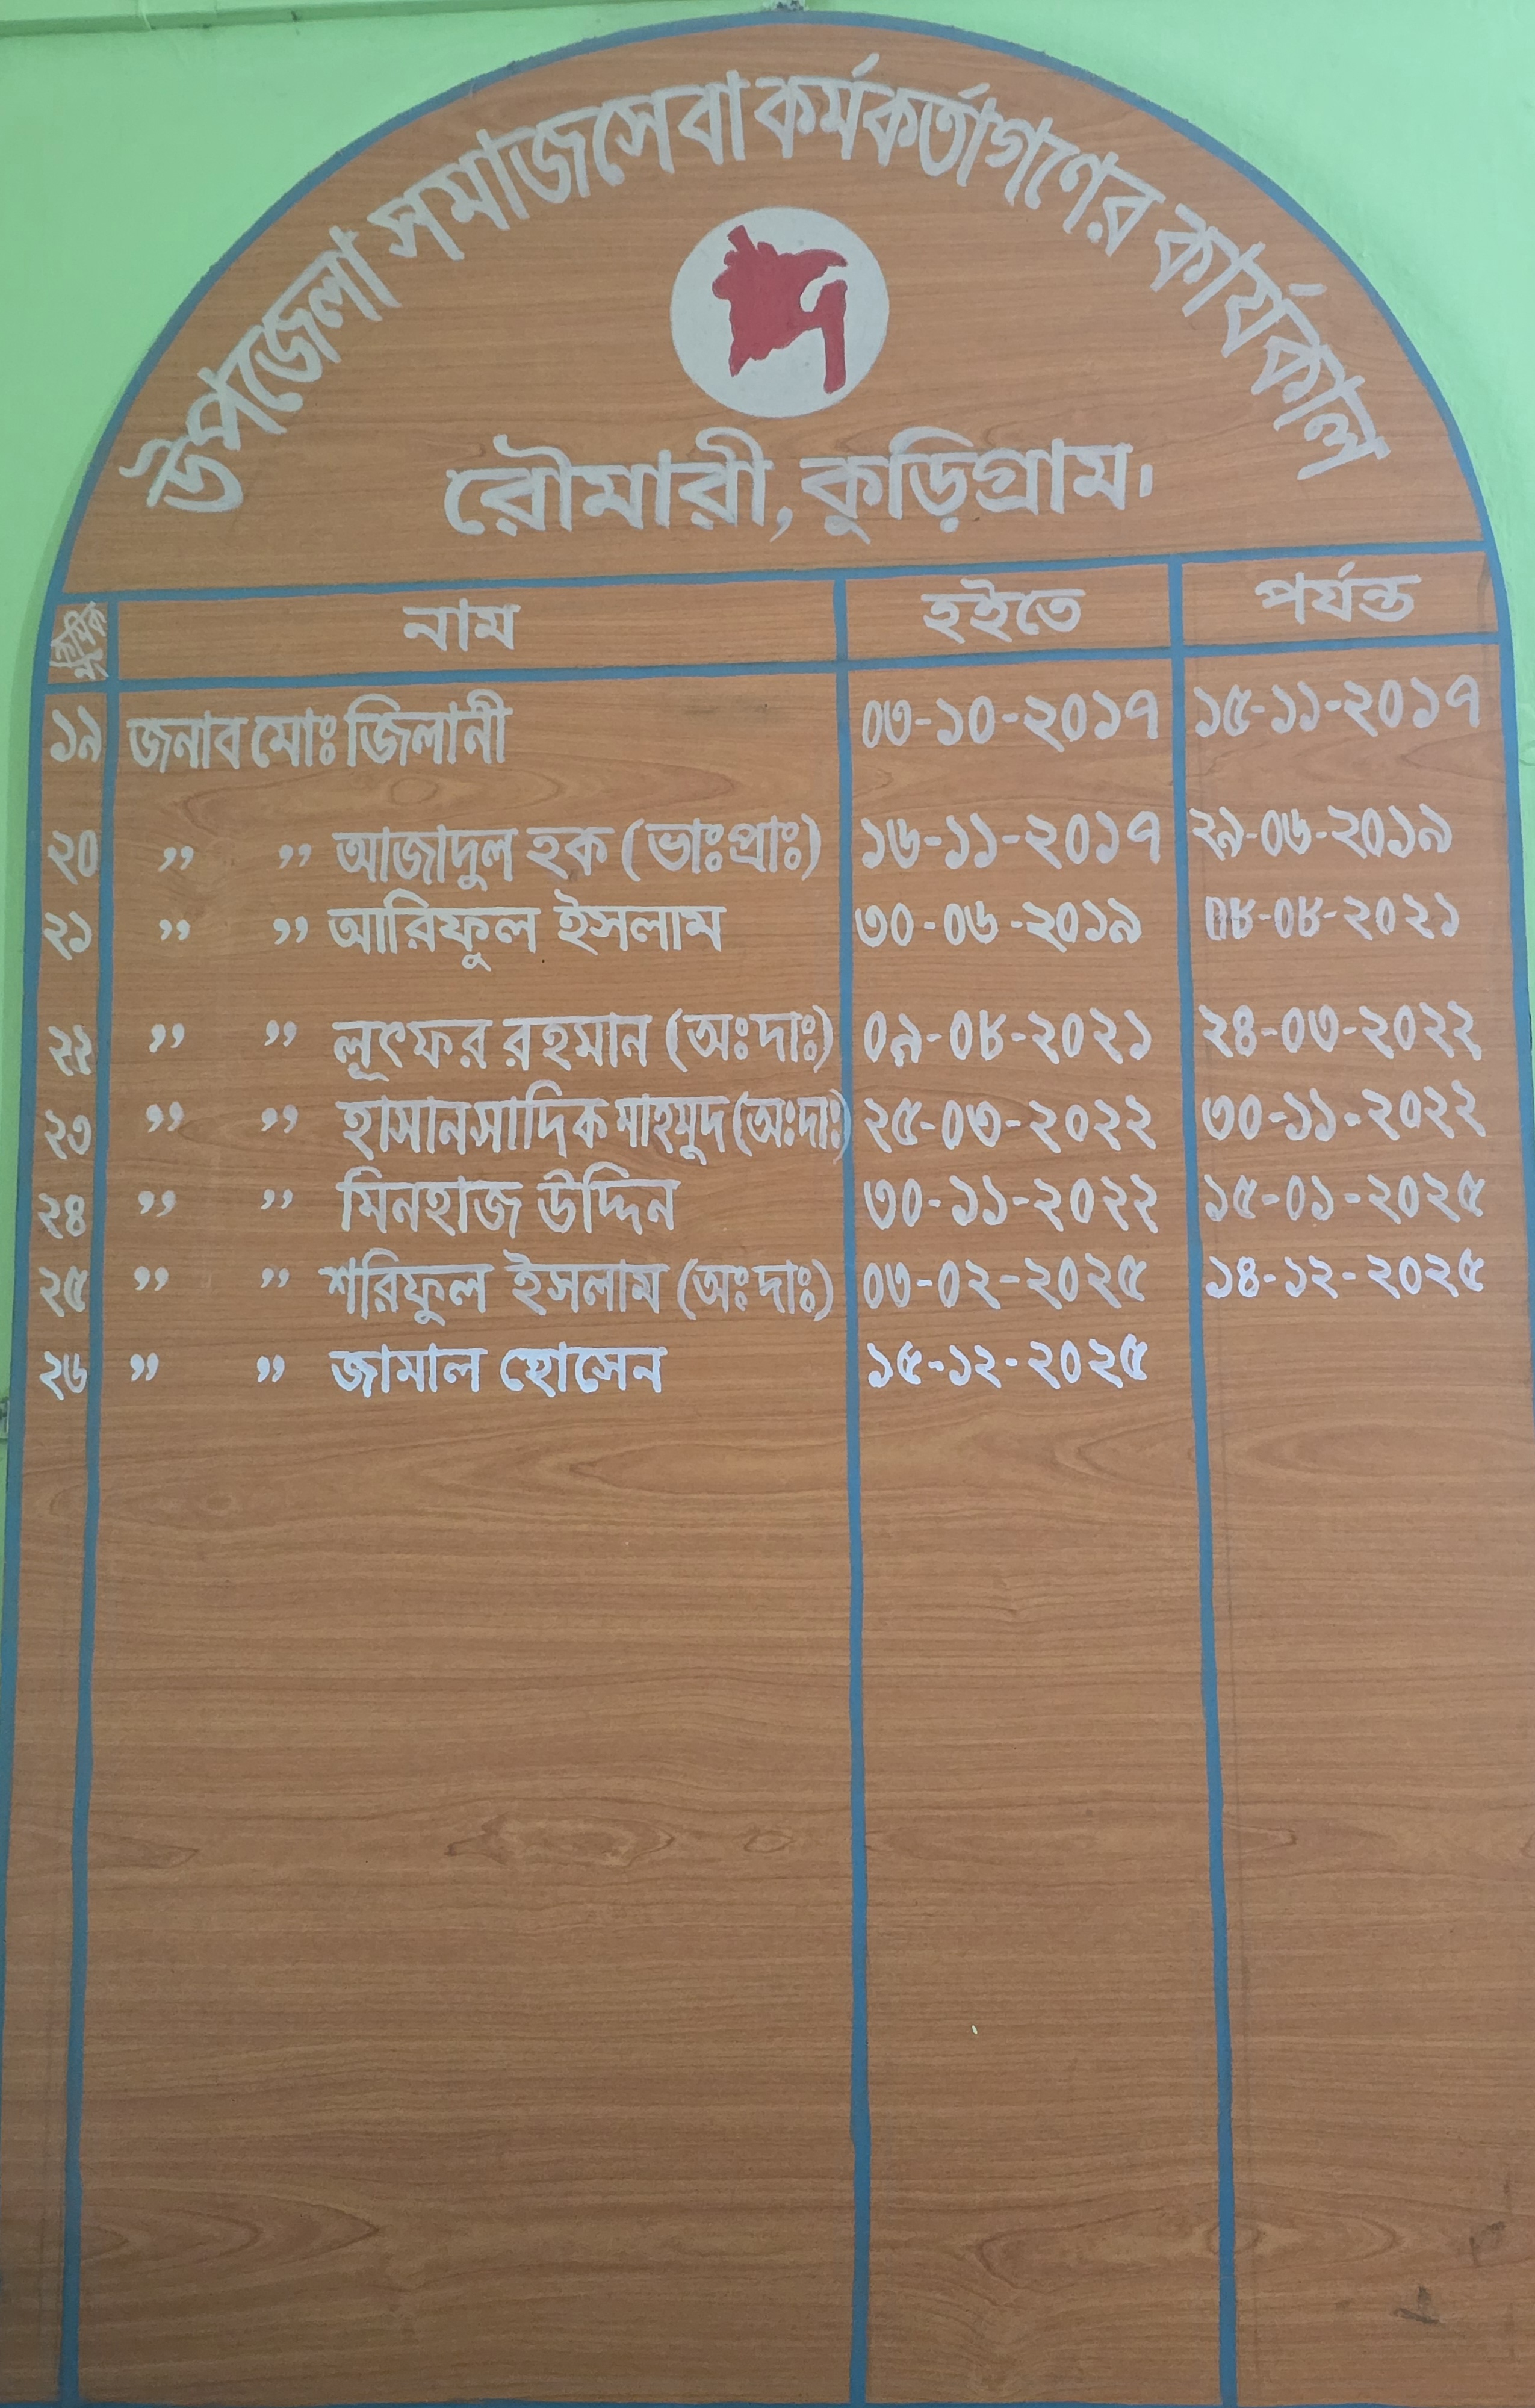 উপজেলা সমাজসেবা কর্মকর্তাগণের কার্যকাল
রৌমারী, কুড়িগ্রাম।
ক্রমিক নং নাম হইতে পর্যন্ত
১৯ জনাব মোঃ জিলানী ০৩-১০-২০১৭ ১৫-১১-২০১৭
২০ ” ” আজাদুল হক (ভাঃপ্রাঃ) ১৬-১১-২০১৭ ২৯-০৬-২০১৯
২১ ” ” আরিফুল ইসলাম ৩০-০৬-২০১৯ ০৮-০৮-২০২১
২২ ” ” লূৎফর রহমান (অঃদাঃ) ০৯-০৮-২০২১ ২৪-০৩-২০২২
২৩ ” ” হাসান সাদিক মাহমুদ (অঃদাঃ) ২৫-০৩-২০২২ ৩০-১১-২০২২
২৪ ” ” মিনহাজ উদ্দিন ৩০-১১-২০২২ ১৫-০১-২০২৫
২৫ ” ” শরিফুল ইসলাম (অঃদাঃ) ০৩-০২-২০২৫ ১৪-১২-২০২৫
২৬ ” ” জামাল হোসেন ১৫-১২-২০২৫